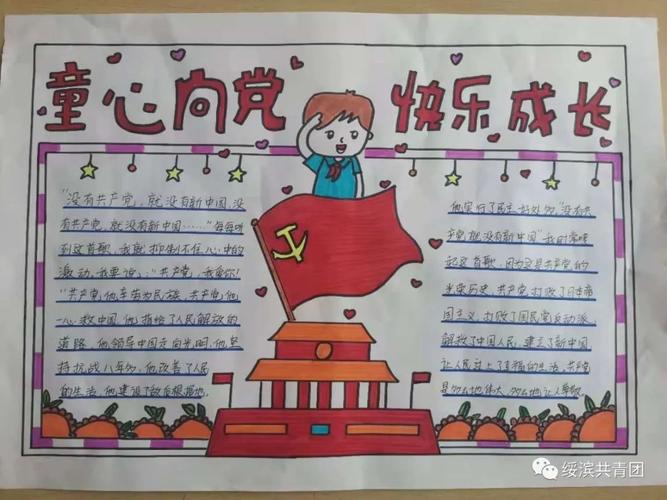 童心向党 快乐成长
"没有共产党,就没有新中国,没
有共产党,就没有新中国……"每每听
到这首歌,我就抑制不住心中的
激动,我要说:"共产党,我爱你!
"共产党他辛苦为民族,共产党他
一心救中国,他指给了人民解放的
道路,他领导中国走向光明,他坚
持抗战八年多,他改善了人民
的生活,他建设了敌后根据地,
他实行了民主好处多"没有共
产党就没有新中国"我时常哼
起这首歌,因为这是共产党的
光荣历史,共产党打败了日本帝
国主义,打败了国民党反动派
解放了中国人民,建立了新中国
让人民过上了幸福的生活,共产党
是多么地伟大,多么地让人尊敬,
绥滨共青团